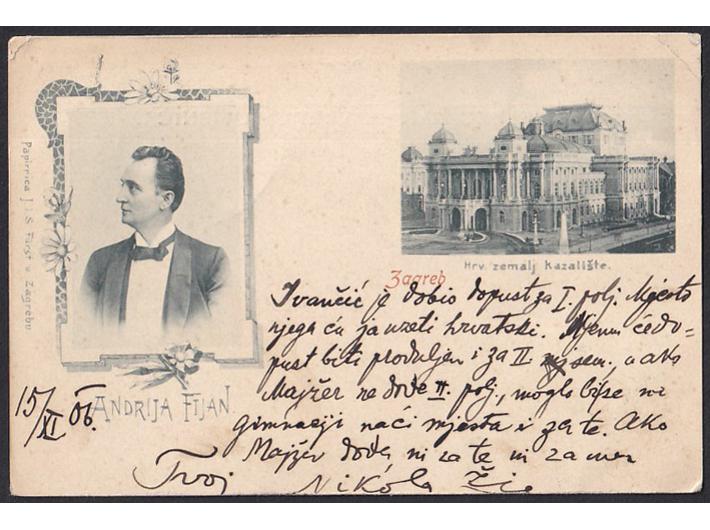 Papirnica J. S. Fürst u Zagrebu
Hrv. zemalj. Kazalište.
Zagreb
Ivančić je dobio dopust za I. polj. Mjesto
njega ću ja uzeti hrvatski. Njemu će do-
pust biti produljen i za II. sem., a ako
Majžer ne dođe II. polj., moglo bi se na
gimnaziji naći mjesta i za te. Ako
Majžer dođe, ni za te ni za
Tvoj Nikola
15/XI 06.
ANDRIJA FIJAN.